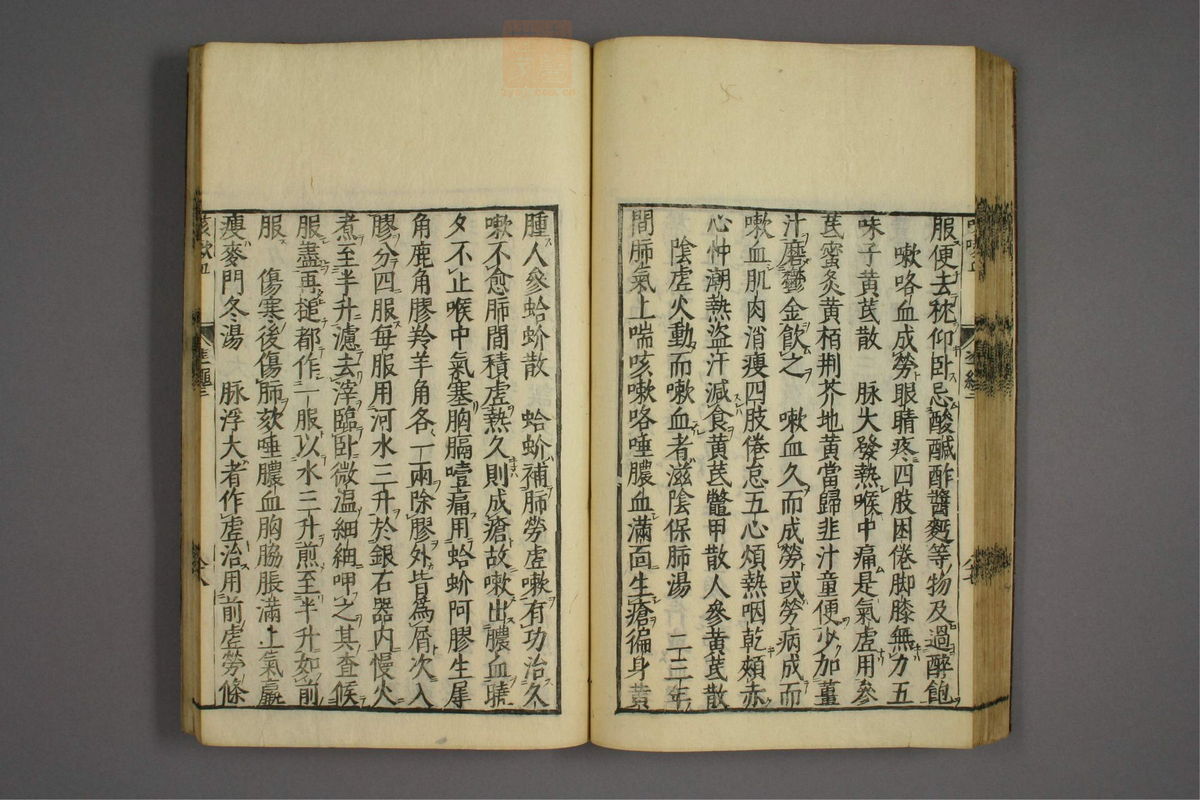 服便去枕仰卧忌酸醎酢醬麪等物及過醉飽
嗽咯血成勞眼睛疼四肢困倦脚膝無力五
味子黃芪散　脉大發熱喉中痛是氣虛用參
芪蜜灸黃栢荆芥地黃當歸韭汁童便少加薑
汁磨欝金飲之　嗽血久而成勞或勞病成而
嗽血肌肉消瘦四肢倦怠五心煩熱咽乾頰赤
心忡潮熱盗汗減食黃芪鼈甲散人參黃芪散
陰虛火動而嗽血者滋陰保肺湯　二三年
間肺氣上喘咳嗽咯唾膿血滿面生瘡徧身黃
腫人參蛤蚧散　蛤蚧補肺勞虛嗽有功治久
嗽不愈肺間積虛熱久則成瘡故嗽出膿血曉
夕不止喉中氣塞胸膈噎痛用蛤蚧阿膠生犀
角鹿角膠羚羊角各一兩除膠外皆為屑次入
膠分四服每服用河水三升於銀石器内慢火
煮至半升濾去滓臨卧微温細細呷之其査候
服盡再搥都作一服以水三升煎至半升如前
服　傷寒後傷肺欬唾膿血胸脇脹滿上氣羸
瘦麥門冬湯　脉浮大者作虛治用前虛勞條